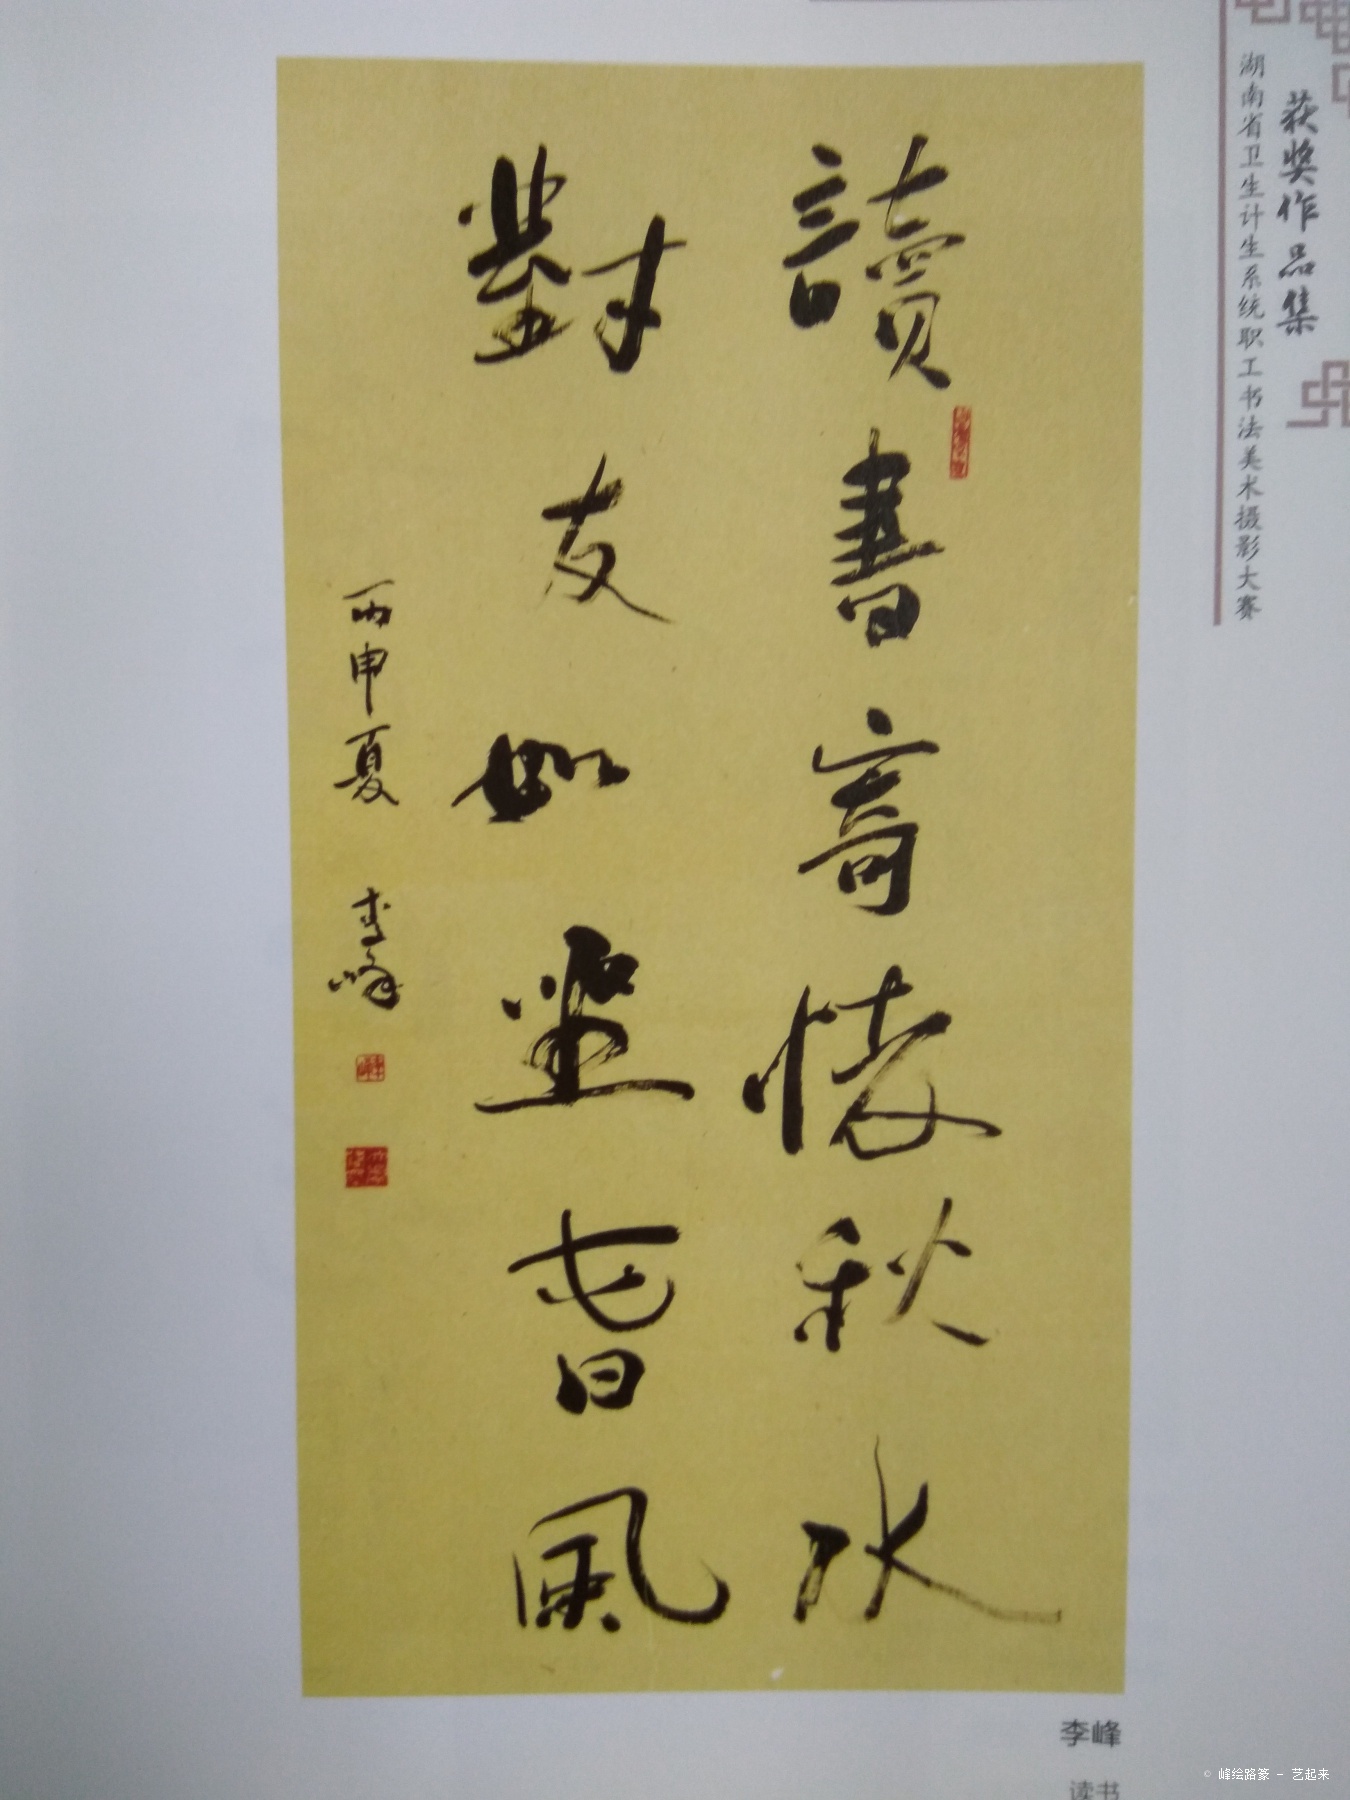 获奖作品集
湖南省卫生计生系统职工书法美术摄影大赛
讀書寄懷秋水
對友如坐春風
丙申夏 李峰
李峰
读书
© 峰绘路篆 - 艺起来